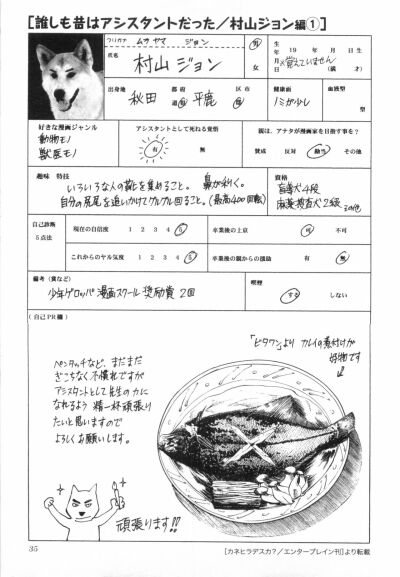 [誰しも昔はアシスタントだった/村山ジョン編①]
フリガナ ムラヤマ ジョン
氏名 村山ジョン
男 女
生年月日 19 年 月 日生
※覚えていません (満 才)
出身地 秋田 都道府県 平鹿 区市
健康面 ノミが少し
血液型 型
好きな漫画ジャンル
動物モノ
獣医モノ
アシスタントとして死ねる覚悟
有 無
親は、アナタが漫画家を目指す事を?
賛成 反対 勘当 その他
趣味 特技
いろいろな人の靴を集めること。 鼻が利く。
自分の尻尾を追いかけてグルグル回ること。(最高400回転)
資格
盲導犬4段
麻薬捜査犬2級 その他
自己診断
5点法
現在の自信度 1 2 3 4 5
卒業後の上京 可 不可
これからのヤル気度 1 2 3 4 5
卒業後の親からの援助 有 無
備考(賞など)
少年ゲロッパ漫画スクール 奨励賞 2回
喫煙
する しない
(自己PR欄)
ペンタッチなど、まだまだ
ぎこちなく不慣れですが
アシスタントとして先生の力に
なれるよう 精一杯頑張り
たいと思いますので
よろしくお願いします。
「ビタワン」より カレイの煮付けが
好物です
頑張ります!!
35
[カネヒラデスカ?/エンターブレイン刊]より転載